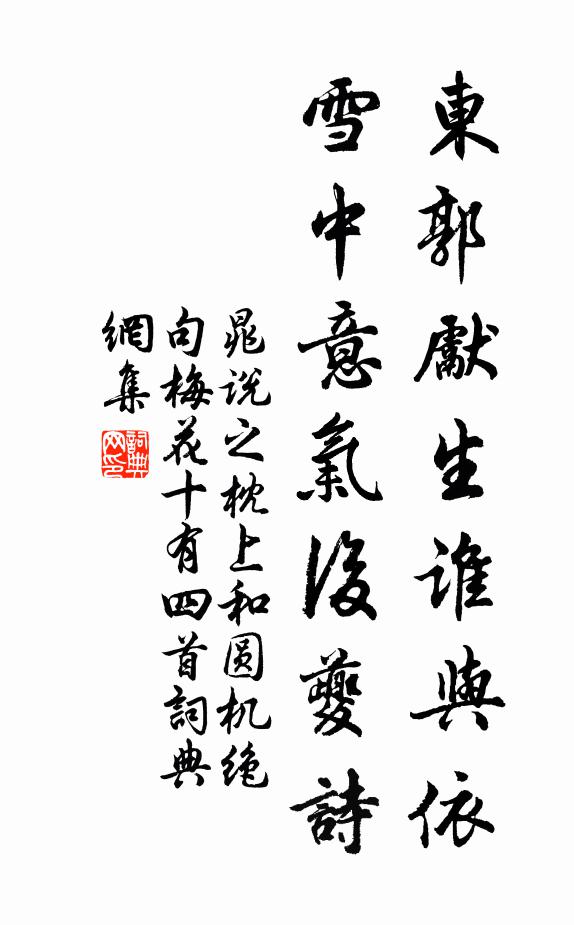 東郭獻生誰與依
雪中意氣後夔詩
晁說之枕上和圆机绝
句梅花十有四首詞典
網集
詞典
网印